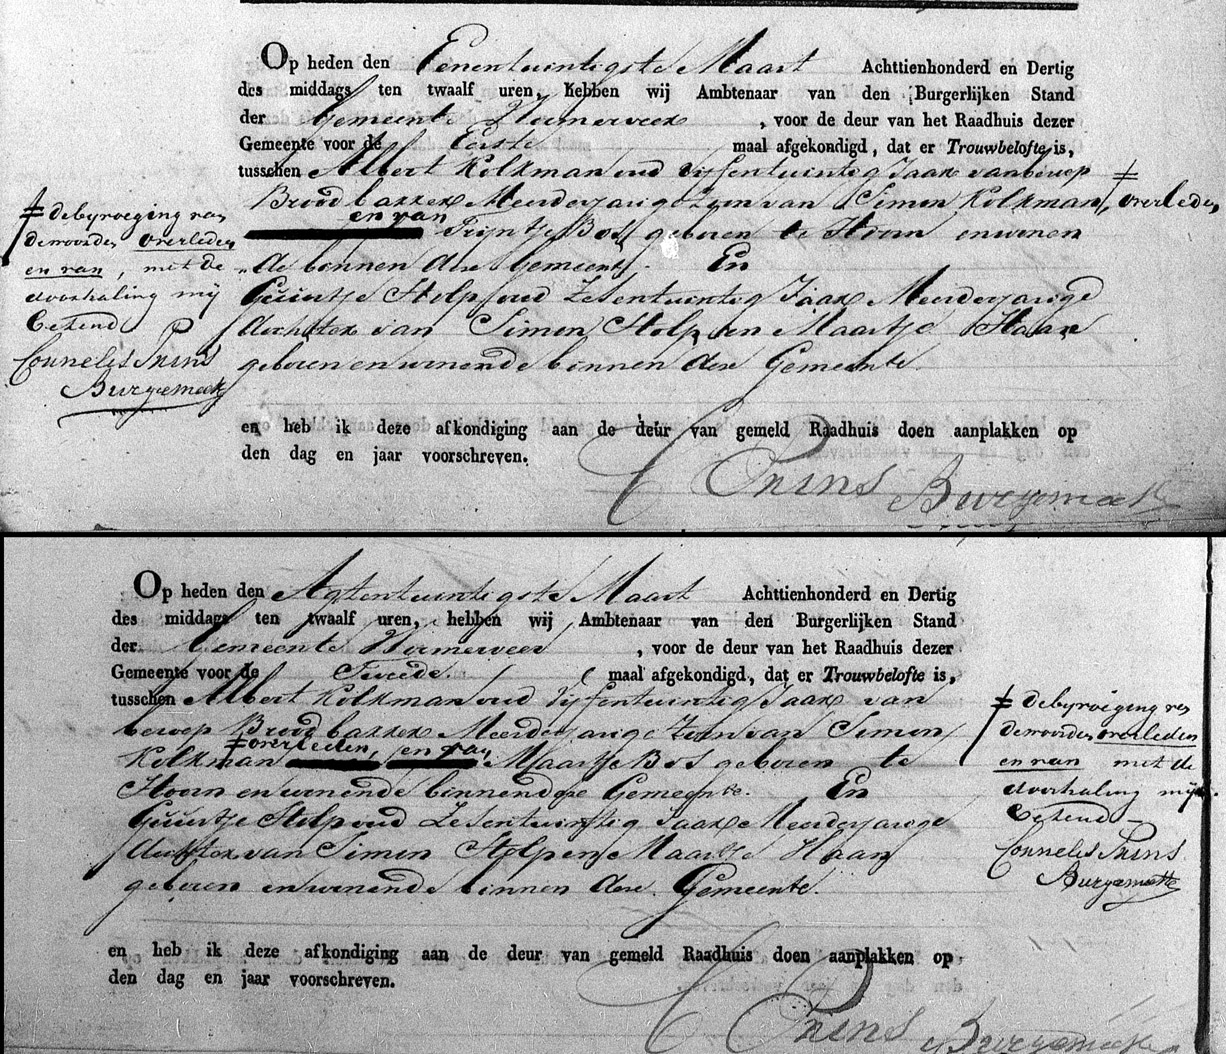 Op heden den Eenentwintigste Maart Achttienhonderd en Dertig
des middags ten twaalf uren, hebben wij Ambtenaar van den Burgerlijken Stand
der Gemeente Wormerveer, voor de deur van het Raadhuis dezer
Gemeente voor de Eerste maal afgekondigd, dat er Trouwbelofte is,
tusschen Albert Kolkman oud Vijfentwintig Jaar van beroep
Brood bakker Meerderjarige Zoon van Simon Kolkman, ≠ overleden
en van
Trijntje Bos geboren te Hoorn en wonen
de binnen dese Gemeente. En
Guurtje Stolp oud Zesentwintig Jaar Meerderjarige
dochter van Simon Stolp en Maartje Haan
geboren en wonende binnen dese Gemeente.
≠ de byvoeging van
de woorden overleden
en van, met de
doorhaling mij
bekend
Cornelis Prins
Burgemeester
en heb ik deze afkondiging aan de deur van gemeld Raadhuis doen aanplakken op
den dag en jaar voorschreven.
C Prins Burgemeester
Op heden den Agtentwintigste Maart Achttienhonderd en Dertig
des middags ten twaalf uren, hebben wij Ambtenaar van den Burgerlijken Stand
der Gemeente Wormerveer, voor de deur van het Raadhuis dezer
Gemeente voor de Tweede maal afgekondigd, dat er Trouwbelofte is,
tusschen Albert Kolkman oud Vijfentwintig Jaar van
beroep Brood bakker Meerderjarige Zoon van Simon
≠ overleden, en van
Kolkman Maartje Bos geboren te
Hoorn en wonende binnen dese Gemeente. En
Guurtje Stolp oud Zesentwintig Jaar Meerderjarige
dochter van Simon Stolp en Maartje Haan
geboren en wonende binnen dese Gemeente.
≠ de byvoeging van
de woorden overleden
en van met de
doorhaling mij
bekend
Cornelis Prins
Burgemeester
en heb ik deze afkondiging aan de deur van gemeld Raadhuis doen aanplakken op
den dag en jaar voorschreven.
C Prins Burgemeester